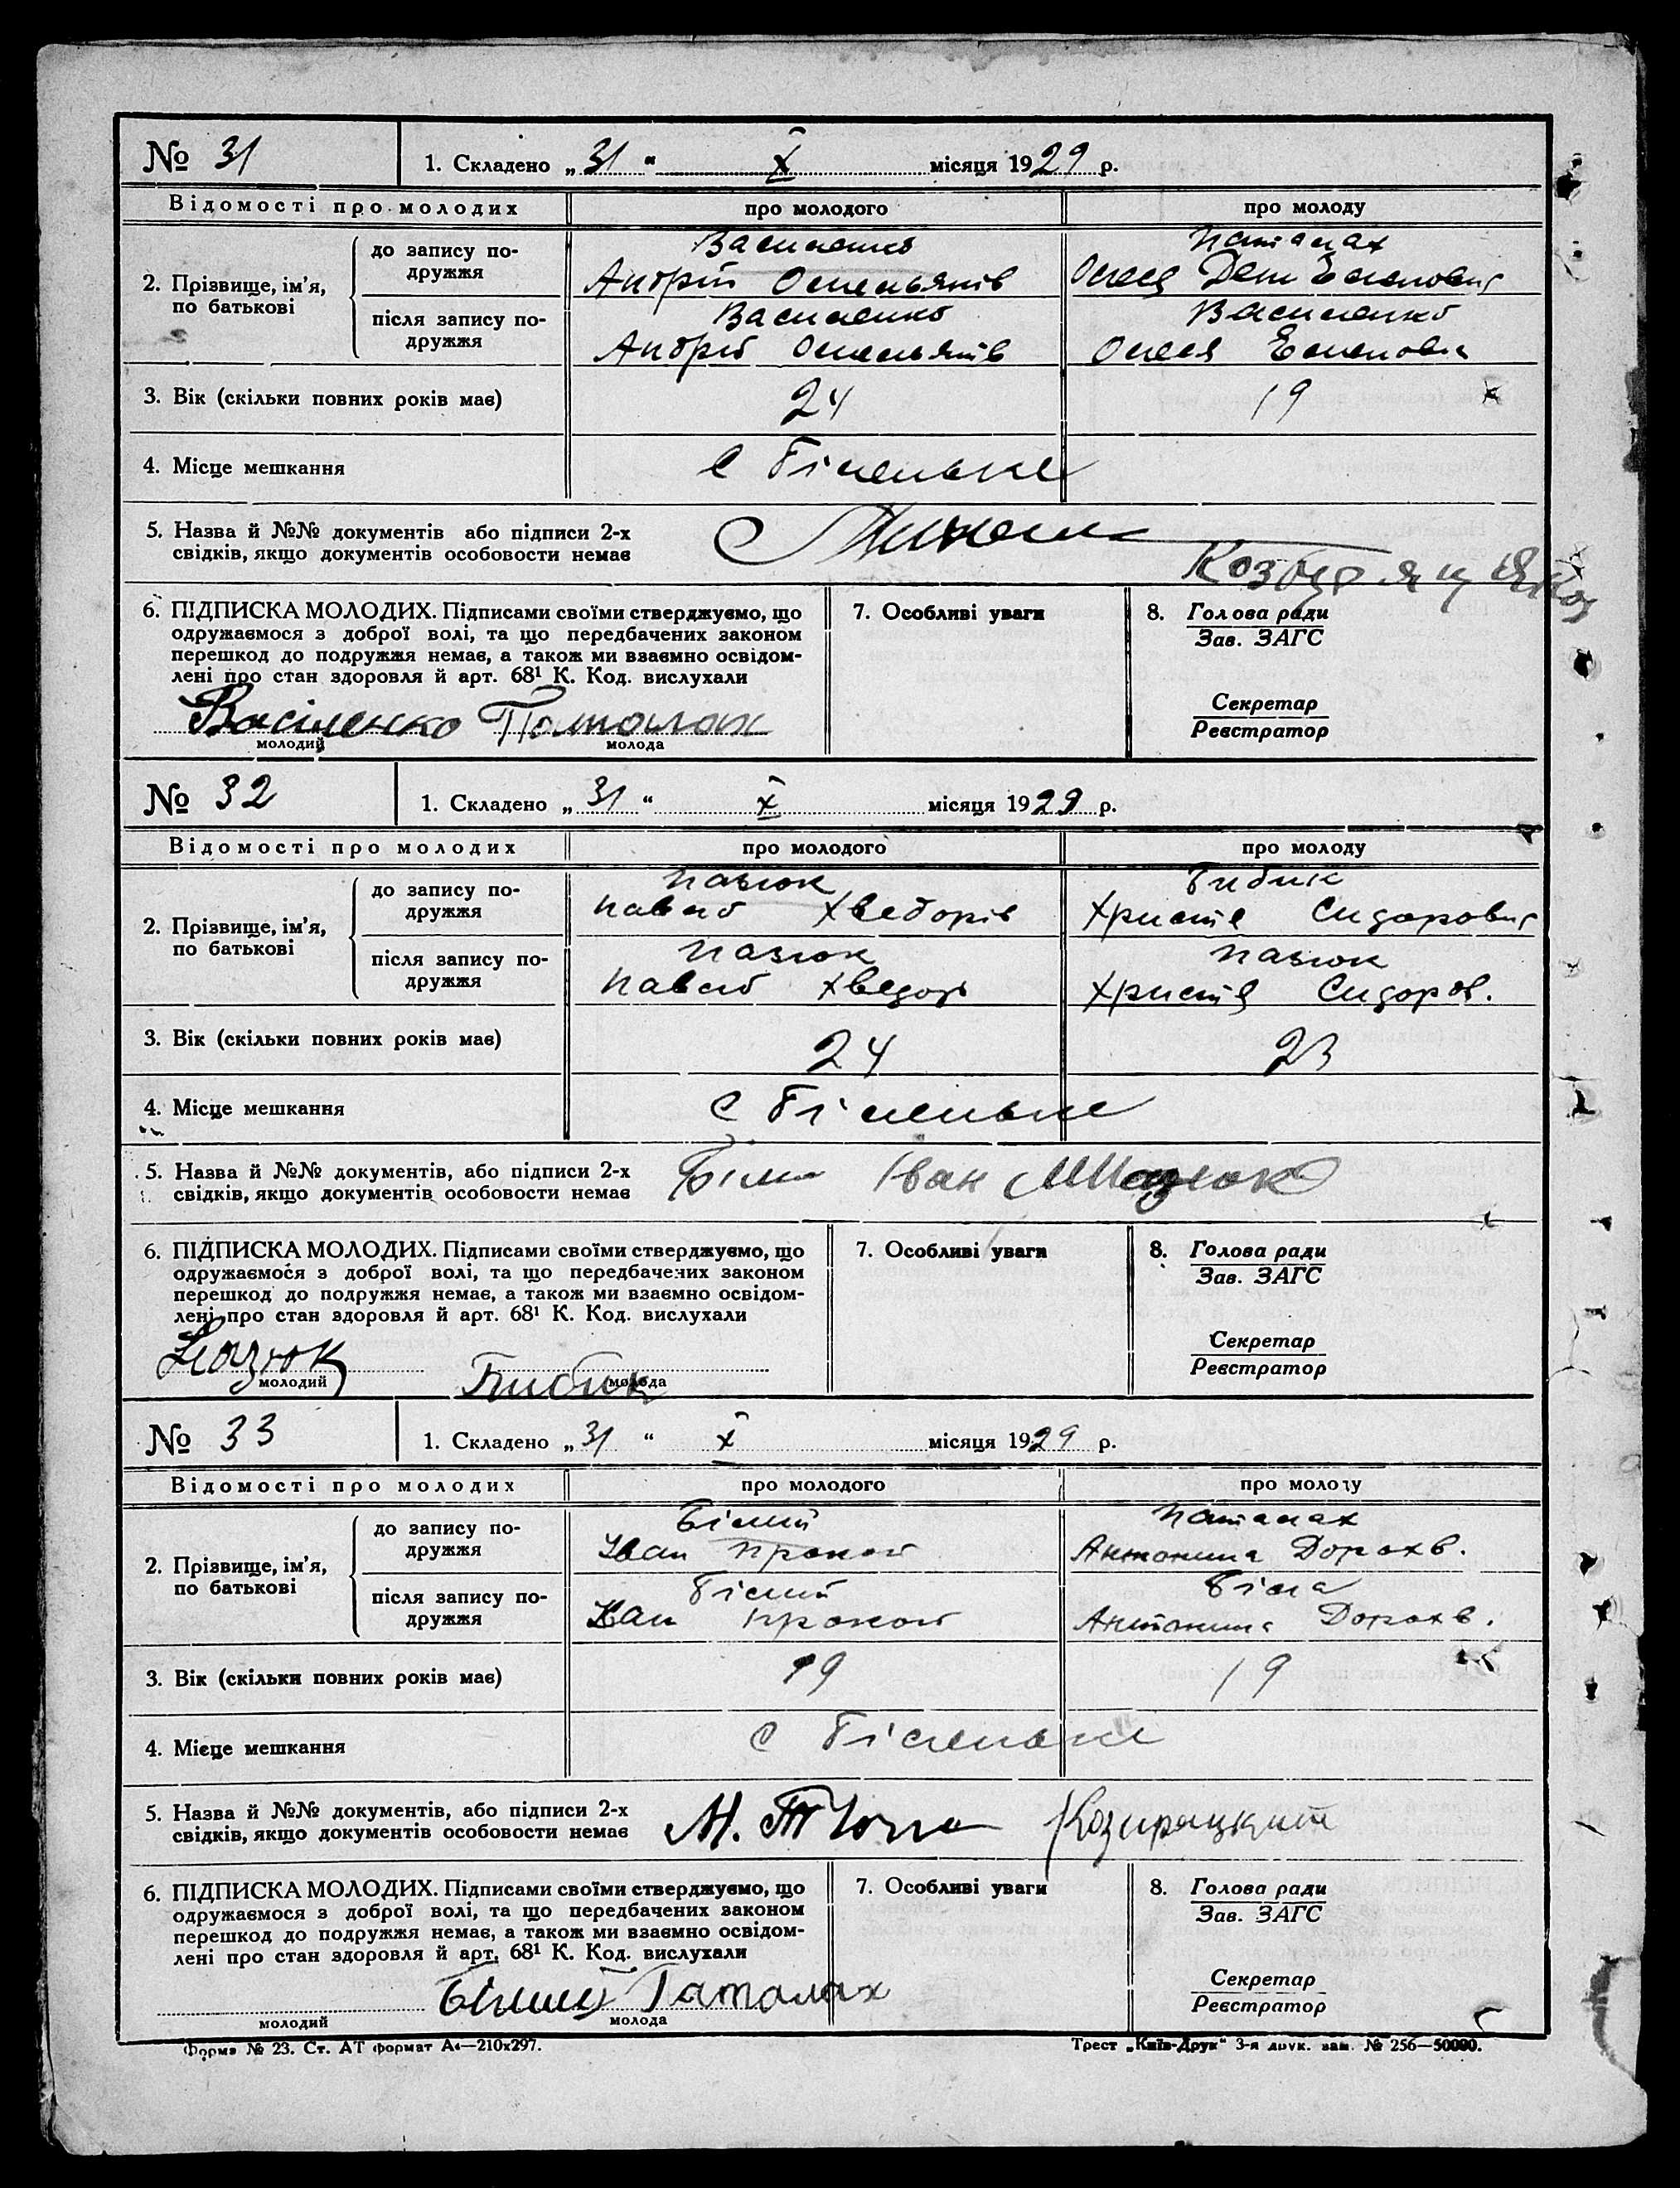 № 31
1. Складено „31“ X місяця 1929 р.
Відомості про молодих про молодого про молоду
2. Прізвище, ім’я, по батькові
до запису подружжя
Василенко Паталах
Андрій Омельянів Олеся
після запису подружжя
Василенко Василенко
Андрій Омельянів Олеся
3. Вік (скільки повних років має) 24 19
4. Місце мешкання с Біленьке
5. Назва й №№ документів або підписи 2-х
свідків, якщо документів особовости немає
6. ПІДПИСКА МОЛОДИХ. Підписами своїми стверджуємо, що
одружаємося з доброї волі, та що передбачених законом
перешкод до подружжя немає, а також ми взаємно освідом-
лені про стан здоровля й арт. 68¹ К. Код. вислухали
Василенко Паталах
молодий молода
7. Особливі уваги
8. Голова ради
Зав. ЗАГС
Секретар
Реєстратор
№ 32
1. Складено „31“ X місяця 1929 р.
Відомості про молодих про молодого про молоду
2. Прізвище, ім’я, по батькові
до запису подружжя
Пазюк Бибик
Павло Хведорів Христя Сидоровна
після запису подружжя
Пазюк Пазюк
Павло Хведор Христя Сидоров.
3. Вік (скільки повних років має) 24 23
4. Місце мешкання с Біленьке
5. Назва й №№ документів, або підписи 2-х
свідків, якщо документів особовости немає
Іван Пазюк
6. ПІДПИСКА МОЛОДИХ. Підписами своїми стверджуємо, що
одружаємося з доброї волі, та що передбачених законом
перешкод до подружжя немає, а також ми взаємно освідом-
лені про стан здоровля й арт. 68¹ К. Код. вислухали
Пазюк Бибик
молодий молода
7. Особливі уваги
8. Голова ради
Зав. ЗАГС
Секретар
Реєстратор
№ 33
1. Складено „31“ X місяця 1929 р.
Відомості про молодих про молодого про молоду
2. Прізвище, ім’я, по батькові
до запису подружжя
Білий Паталах
Іван Прокоп Антонина Дорохв.
після запису подружжя
Білий Біла
Іван Прокоп Антонина Дорохв.
3. Вік (скільки повних років має) 19 19
4. Місце мешкання с Біленьке
5. Назва й №№ документів, або підписи 2-х
свідків, якщо документів особовости немає
Козирацкий
6. ПІДПИСКА МОЛОДИХ. Підписами своїми стверджуємо, що
одружаємося з доброї волі, та що передбачених законом
перешкод до подружжя немає, а також ми взаємно освідом-
лені про стан здоровля й арт. 68¹ К. Код. вислухали
Білий Паталах
молодий молода
7. Особливі уваги
8. Голова ради
Зав. ЗАГС
Секретар
Реєстратор
Форма № 23. Ст. АТ формат А4—210х297.
Трест „Київ-Друк“ 3-я друк. зам. № 256—50000.